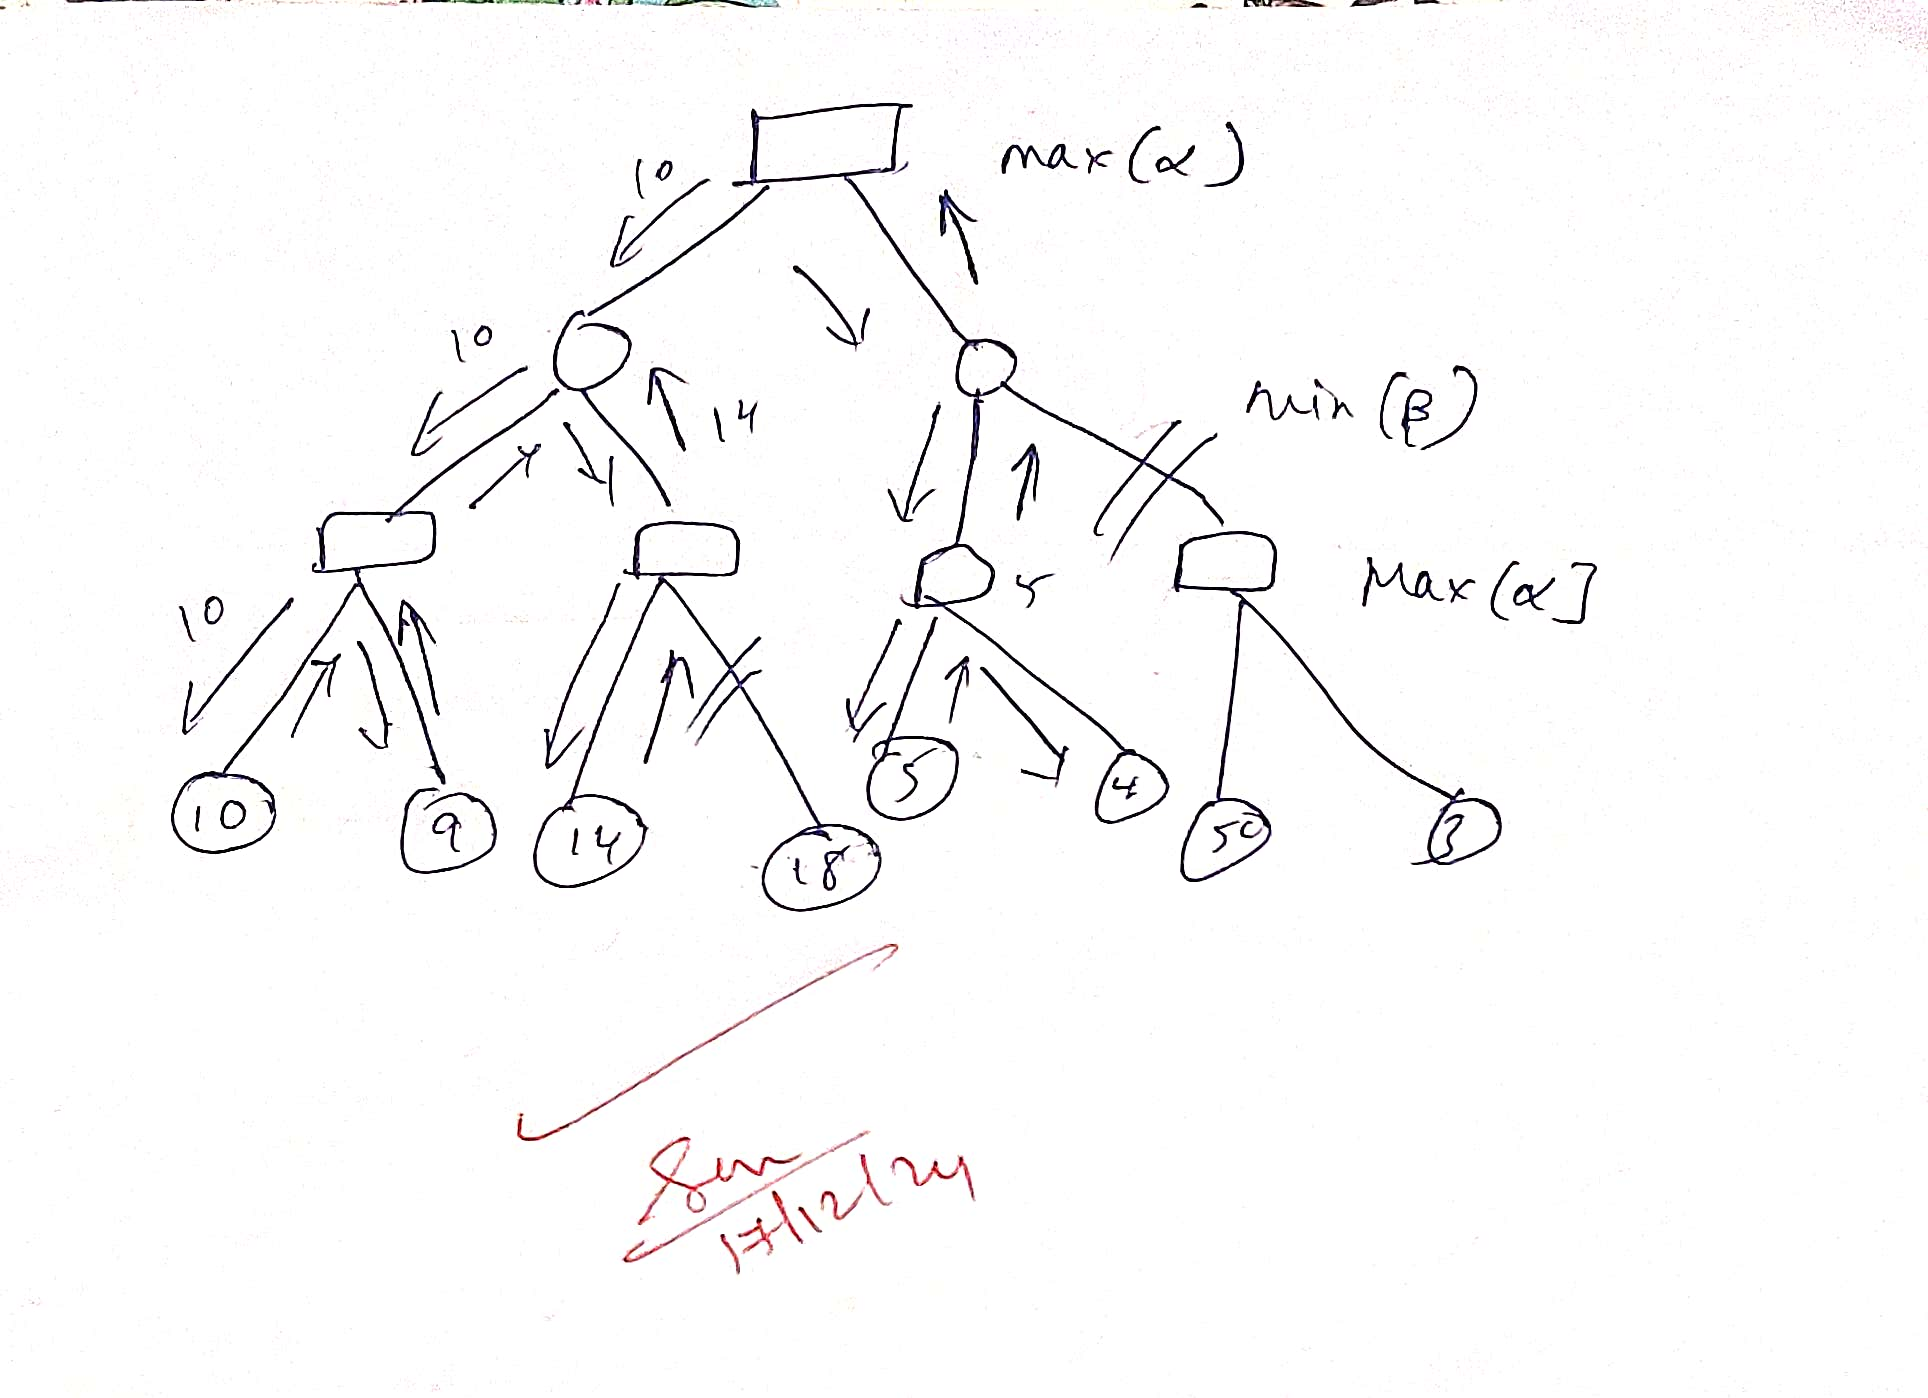 10 max(α)
10 14 min(β)
10 5 Max(α]
10 9 14 18 5 4 50 3
17/12/24